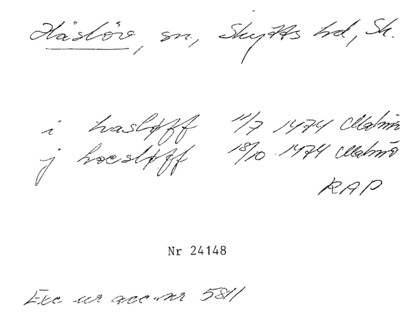 Håslöv, sn, Skytts hd, Sk.
i hasløff 11/7 1474 Malmö
j hoesløff 18/10 1474 Malmö
RAP
Nr 24148
Exc. ur acc. nr 5811